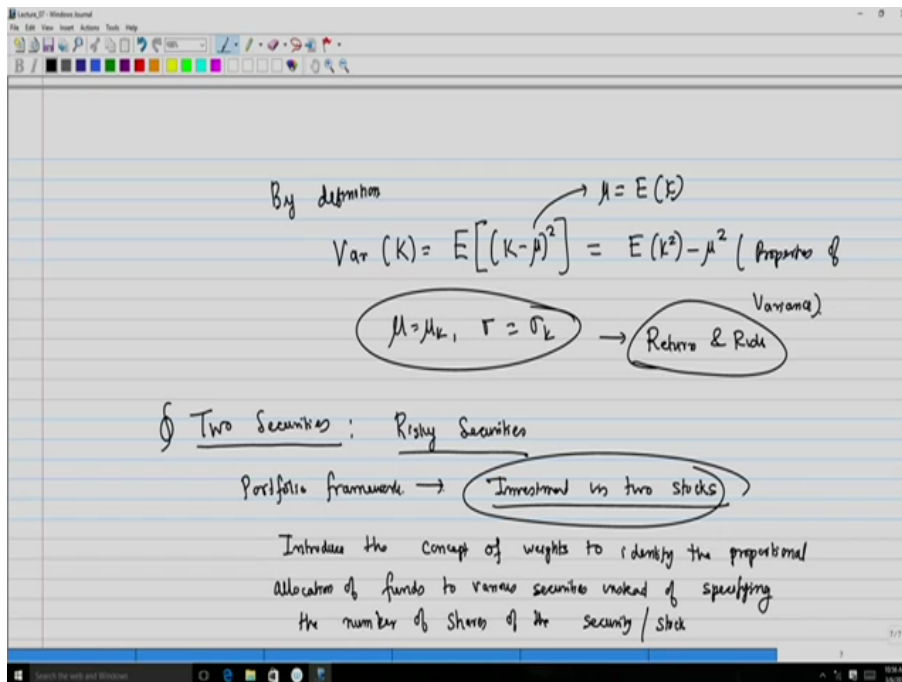 Lecture_07 - Windows Journal
File Edit View Insert Actions Tools Help
100%
B I
By definition
μ = E(K)
Var (K) = E[(K-μ)²] = E(K²) - μ² ( Properties of
Variance).
μ = μ_K, σ = σ_K → Return & Risk
§ Two Securities : Risky Securities
Portfolio framework → Investment in two stocks
Introduce the concept of weights to identify the proportional
allocation of funds to various securities instead of specifying
the number of shares of the security / stock
7/7
7
Search the web and Windows
10:56 A